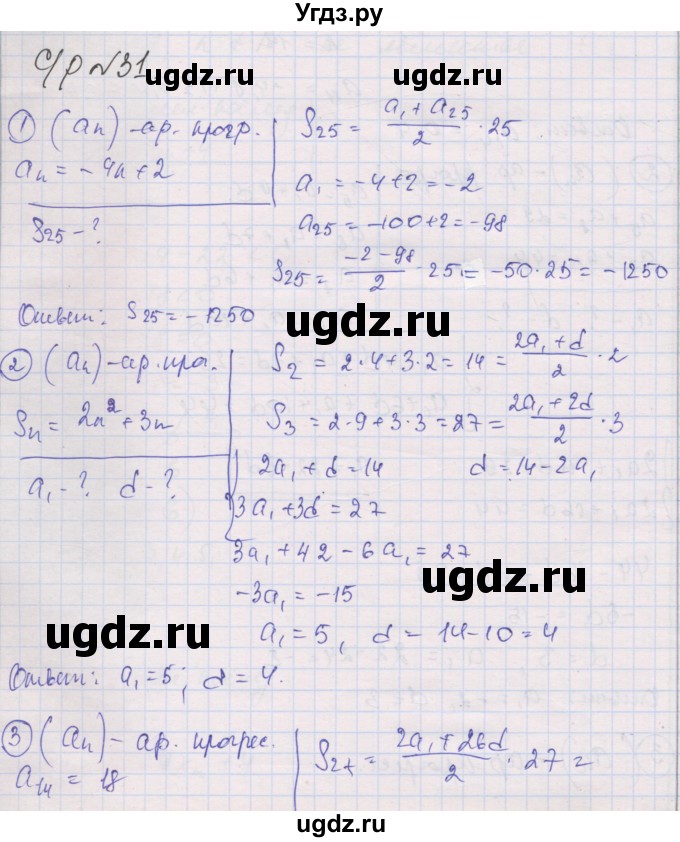 Угдз.ру
С/р №31
ugdz.ru ugdz.ru
① (an) - ар. прогр.
an = -4n+2
S25 - ?
S25 = (a1 + a25)/2 · 25
a1 = -4+2 = -2
a25 = -100+2 = -98
S25 = (-2-98)/2 · 25 = -50·25 = -1250
Ответ: S25 = -1250
ugdz.ru ugdz.ru
② (an) - ар. прог.
Sn = 2n² + 3n
a1 - ? d - ?
S2 = 2·4+3·2 = 14 = (2a1+d)/2 · 2
S3 = 2·9+3·3 = 27 = (2a1+2d)/2 · 3
2a1 + d = 14 d = 14-2a1
3a1 + 3d = 27
3a1 + 42 - 6a1 = 27
-3a1 = -15
a1 = 5, d = 14-10 = 4
ugdz.ru
ugdz.ru
Ответ: a1 = 5; d = 4.
③ (an) - ар. прогрес.
a14 = 18
S27 = (2a1+26d)/2 · 27 =
ugdz.ru ugdz.ru
ugdz.ru